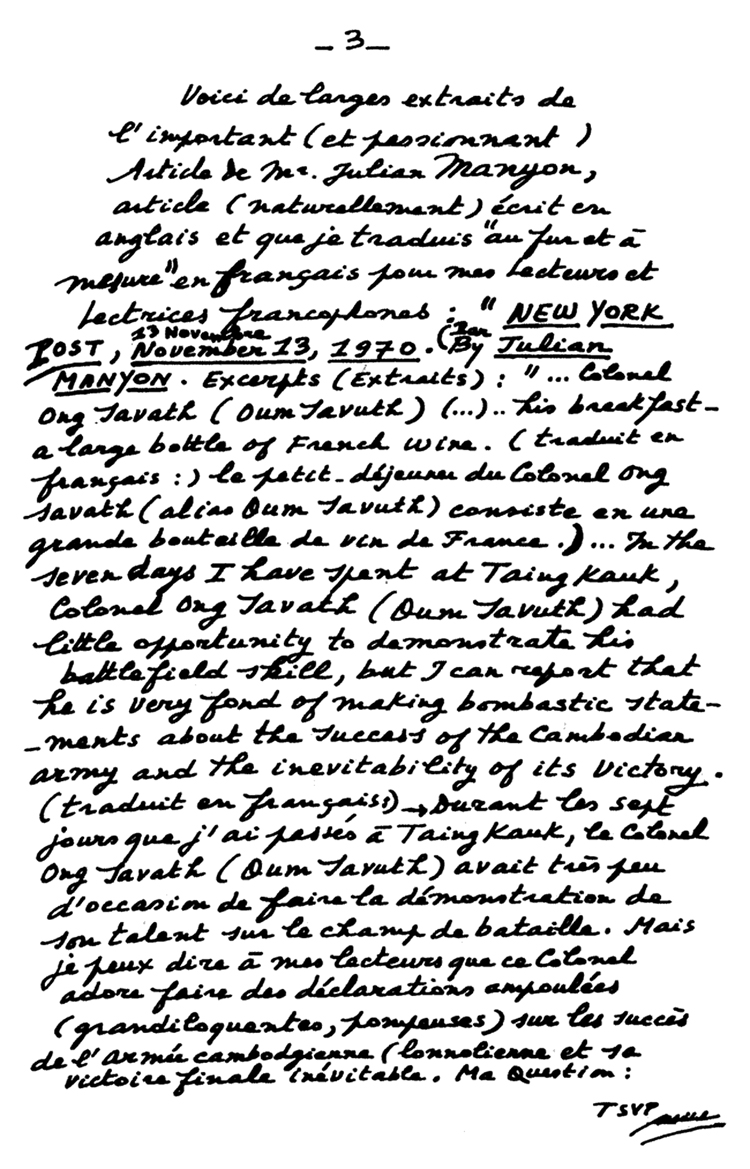 _ 3 _
Voici de larges extraits de
l'important (et passionnant )
Article de Mr. Julian Manyon,
article (naturellement) écrit en
anglais et que je traduis "au fur et à
mesure" en français pour mes lecteurs et
lectrices francophones : " NEW YORK
13 Novembre (Par
POST, November 13, 1970. By Julian
MANYON. Excerpts (Extraits) : "... Colonel
Ong Savath (Oum Savuth) (...).. his breakfast_
a large bottle of French wine. (traduit en
français :) le petit_déjeuner du Colonel Ong
Savath (alias Oum Savuth) consiste en une
grande bouteille de vin de France.)... In the
seven days I have spent at Taing Kauk,
Colonel Ong Savath (Oum Savuth) had
little opportunity to demonstrate his
battlefield skill, but I can report that
he is very fond of making bombastic state_
_ments about the success of the Cambodian
army and the inevitability of its victory.
(traduit en français:)→Durant les sept
jours que j'ai passés à Taing Kauk, le Colonel
Ong Savath (Oum Savuth) avait très peu
d'occasion de faire la démonstration de
son talent sur le champ de bataille. Mais
je peux dire à mes lecteurs que ce Colonel
adore faire des déclarations ampoulées
(grandiloquentes, pompeuses) sur les succès
de l'Armée cambodgienne (lonnolienne et sa
victoire finale inévitable. Ma Question :
TSVP